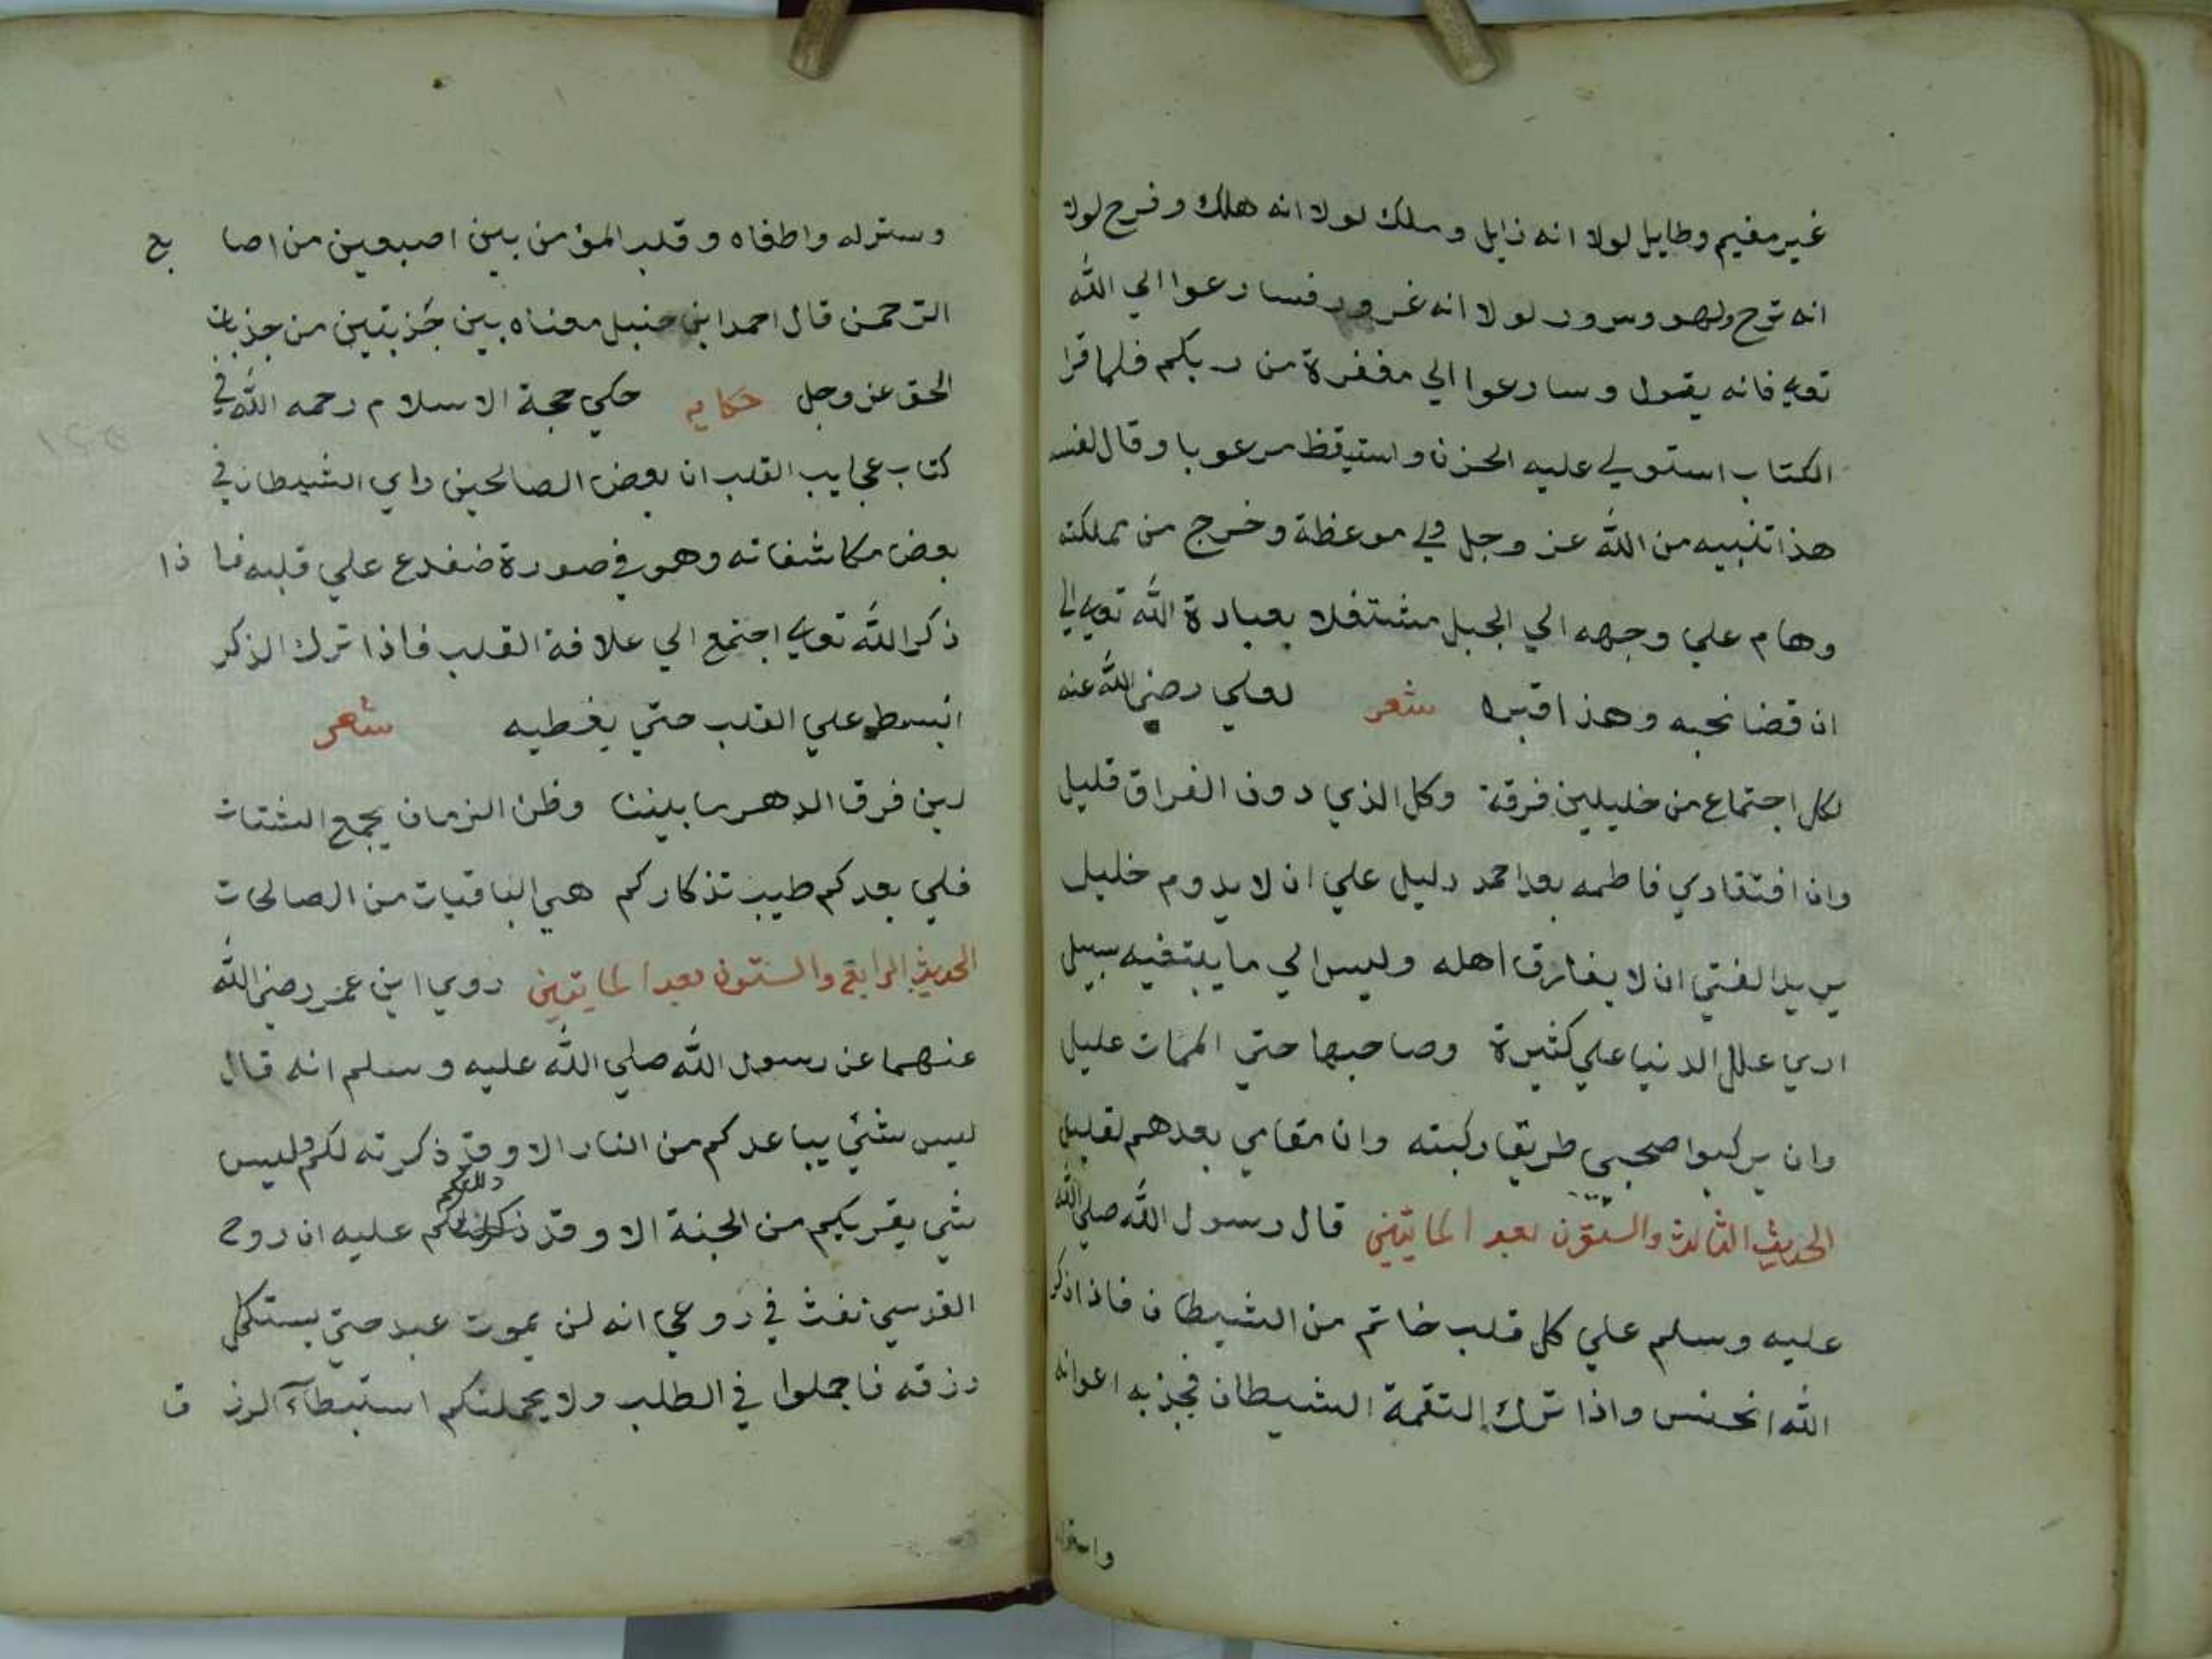 غير مقيم وطايل لولا انه زايل وملك لولا انه هلك وفرح لولا
انه ترح ولهو وسرور لولا انه غرور فسارعوا الي الله
تعالي فانه يقول وسارعوا الي مغفرة من ربكم فلما قرا
الكتاب استولي عليه الحزن واستيقظ مرعوبا وقال لنفسه
هذا تنبيه من الله عز وجل وموعظة وخرج من مملكته
وهام علي وجهه الي الجبل مشتغلا بعبادة الله تعالي الي
ان قضا نحبه وهذا قبره شعر لعلي رضي الله عنه
لكل اجتماع من خليلين فرقة وكل الذي دون الفراق قليل
وان افتقادي فاطمه بعد احمد دليل علي ان لا يدوم خليل
يريد الفتي ان لا يفارق اهله وليس الي ما يبتغيه سبيل
اري علل الدنيا علي كثيرة وصاحبها حتي الممات عليل
وان يركبوا صحبي طريقا ركبته وان مقامي بعدهم لقليل
الحديث الثالث والستون بعد المايتين قال رسول الله صلي الله
عليه وسلم علي كل قلب خاتم من الشيطان فاذا ذكر
الله انخنس واذا ترك التقمة الشيطان فجذبه اعوانه
واستزله
وستزله واطغاه وقلب المؤمن بين اصبعين من اصا بع
الرحمن قال احمد ابن حنبل معناه بين جذبتين من جذبات
الحق عز وجل حكايه حكي حجة الاسلام رحمه الله في
كتاب عجايب القلب ان بعض الصالحين راي الشيطان في
بعض مكاشفاته وهو في صورة ضفدع علي قلبه فا ذا
ذكر الله تعالي اجتمع الي علافة القلب فاذا ترك الذكر
انبسط علي القلب حتي يغطيه شعر
لين فرق الدهر ما بيننا وظن الزمان يجمع الشتات
فلي بعدكم طيب تذكاركم هي الباقيات من الصالحات
الحديث الرابع والستون بعد المايتين روي ابن عمر رضي الله
عنهما عن رسول الله صلي الله عليه وسلم انه قال
ليس شئي يباعدكم من النار الا وقد ذكرته لكم وليس
شي يقربكم من الجنة الا وقد دللتكم عليه ان روح
القدسي نفث في روعي انه لن يموت عبد حتي يستكمل
رزقه فاجملوا في الطلب ولا يحملنكم استبطآء الرز ق